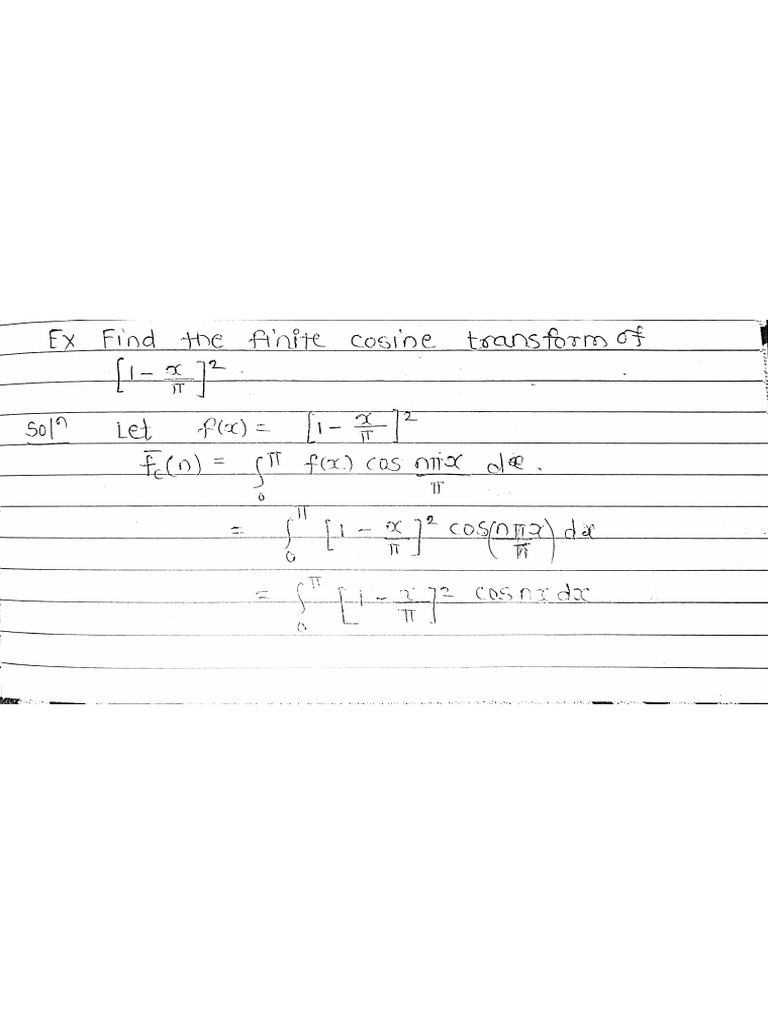 Ex Find the finite cosine transform of
[1 - x/π]²
Solⁿ Let f(x) = [1 - x/π]²
f̅c(n) = ∫₀^π f(x) cos nπx/π dx.
= ∫₀^π [1 - x/π]² cos(nπx/π) dx
= ∫₀^π [1 - x/π]² cos nx dx